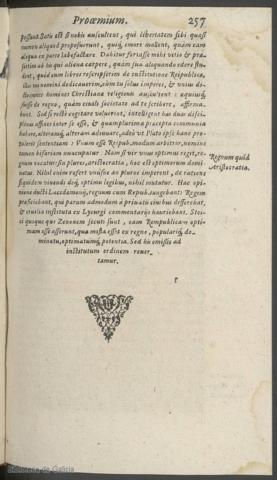 Proœmium. 257
possunt. Satis est si nobis auscultent, qui libertatem sibi quasi
numen aliquod proposuerunt, quiq́; emori malint, quàm eam
aliqua ex parte labefactare. Dabitur fortasse mihi vitio &
serim ad hæc qui aliena carpere, quàm sua aliquando edere
dent, quòd eum libros rescripserim de institutione Reipublicæ,
illos tuo nomini dedicauerim, cùm tu solus imperes, & vnum
homines Christianæ religionis
de regno, quàm ciuili societate ad te scribere,
bunt. Sed si rectè cogitare voluerint, intelligent has duas disci-
plinas affines inter se esse, & quamplurima præcepta communia
habere, alteramq́; alteram adiuuare, adeò vt Plato ipse hanc pro-
tulerit sententiam: Vnum esse Reipub. modum arbitror, nomine
tamen bifariam nuncupatur. Nam si vir vnus optimus regit, re-
gnum vocatur: siu plures, aristocratia, hoc est optimorum domi-
natus. Nihil enim refert vnusne an plures imperent, de ratione
siquidem viuendi deq́; optimis legibus, nihil mutatur. Hac opi-
nione ducti Lacedæmonij, regnum cum Repub. iungebant: Regem
præficiebant, qui parum admodum à priuatis ciuibus differebat,
& omnia instituta ex Lycurgi commentarijs hauriebant. Stoi-
ci quoque qui Zenonem secuti sunt, eam Rempublicam opti-
mam esse asserunt, quæ mista est ex regno, popularíq́; do-
minatu, optimatumq́; potentia. Sed his omissis ad
institutum ordinem reuer-
tamur.
Regnum quid
Aristocratia.
Biblioteca de Galicia